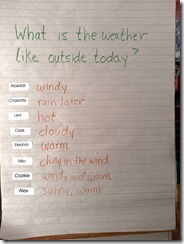 What is the weather
like outside today?
Alasdair windy
Charlotte rain later
Levi hot
Clark cloudy
Eleanor warm
Milo chilly in the wind
Charlee windy and warm
Alex sunny, warm